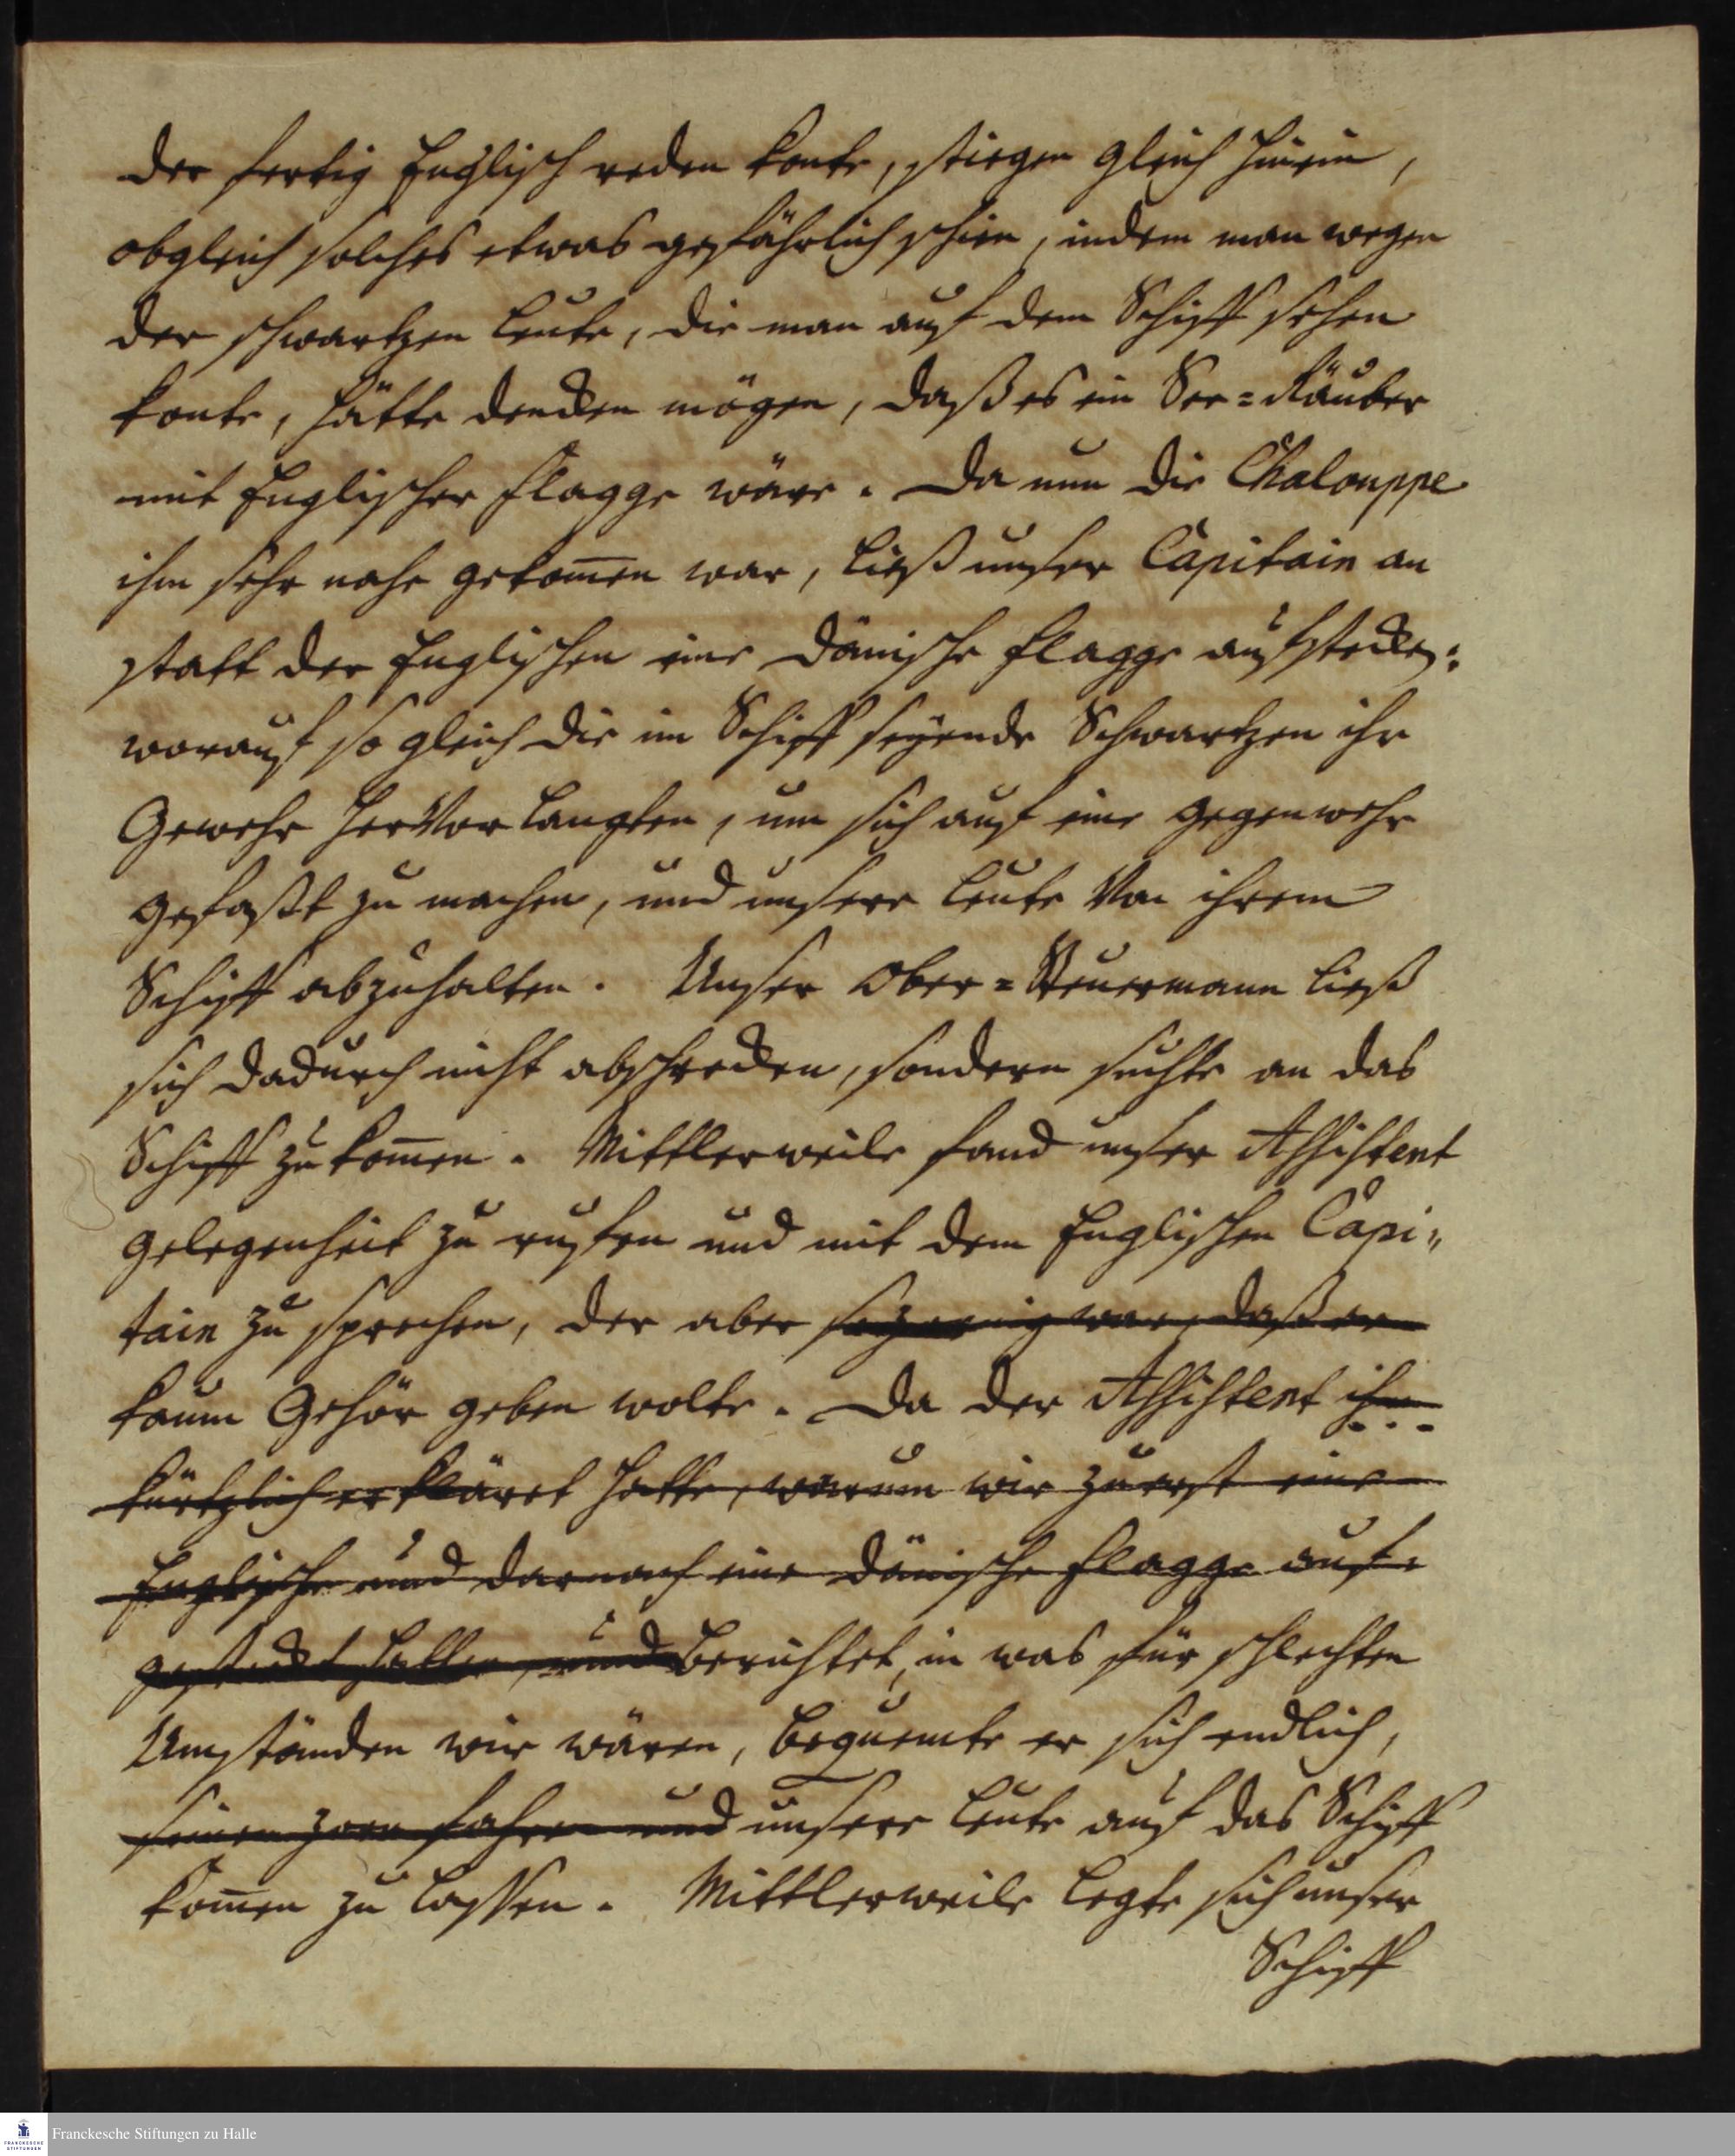 der fertig Englisch reden konte, stiegen gleich hinein,
obgleich solches etwas gefährlich schien, indem man wegen
der schwartzen Leute, die man auf dem Schiff sehen
konte, hätte dencken mögen, daß es ein See=Räuber
mit Englischer Flagge wäre. Da nun die Chalouppe
ihm sehr nahe gekom̅en war, ließ unser Capitain an
statt der Englischen eine Dänische Flagge aufstecken:
worauf so gleich die im Schiff seyende Schwartzen ihr
Gewehr hervor langten, um sich auf eine Gegenwehr
gefaßt zu machen, und unsere Leute von ihrem
Schiff abzuhalten. Unser Ober=Steuermann ließ
sich dadurch nicht abschrecken, sondern suchte an das
Schiff zu kom̅en. Mittlerweile fand unser Assistent
Gelegenheit zu rufen und mit dem Englischen Capi„
tain zu sprechen, der aber so zornig war, daß er
kaum Gehör geben wolte. Da der Assistent ihm
kürtzlich erkläret hatte, warum wir zuerst eine
Englische und darnach eine Dänische Flagge auf=
gesteckt hatten, und berichtet, in was für schlechten
Umständen wir wären, bequemte er sich endlich,
seinen Zorn fahren und unsere Leute auf das Schiff
kom̅en zu lassen. Mittlerweile legte sich unser
Schiff
FRANCKESCHE
STIFTUNGEN
Franckesche Stiftungen zu Halle